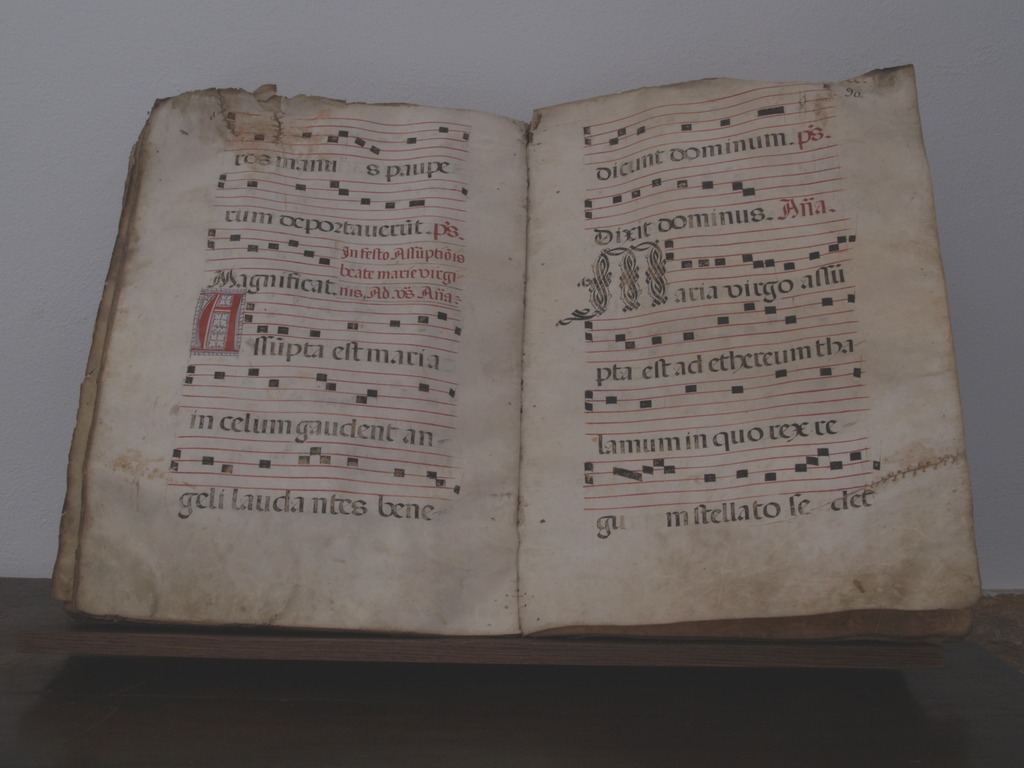 ros manu s paupe
rum deportauerūt. ps.
In festo Assūptiōis
beate marie virgi
Magnificat. nis, Ad. vs̄. Aña.
Assūpta est maria
in celum gaudent an
geli lauda ntes bene
90.
dicunt dominum. ps.
Dixit dominus. Aña.
Maria virgo assū
pta est ad ethereum tha
lamum in quo rex re
gu m stellato se det